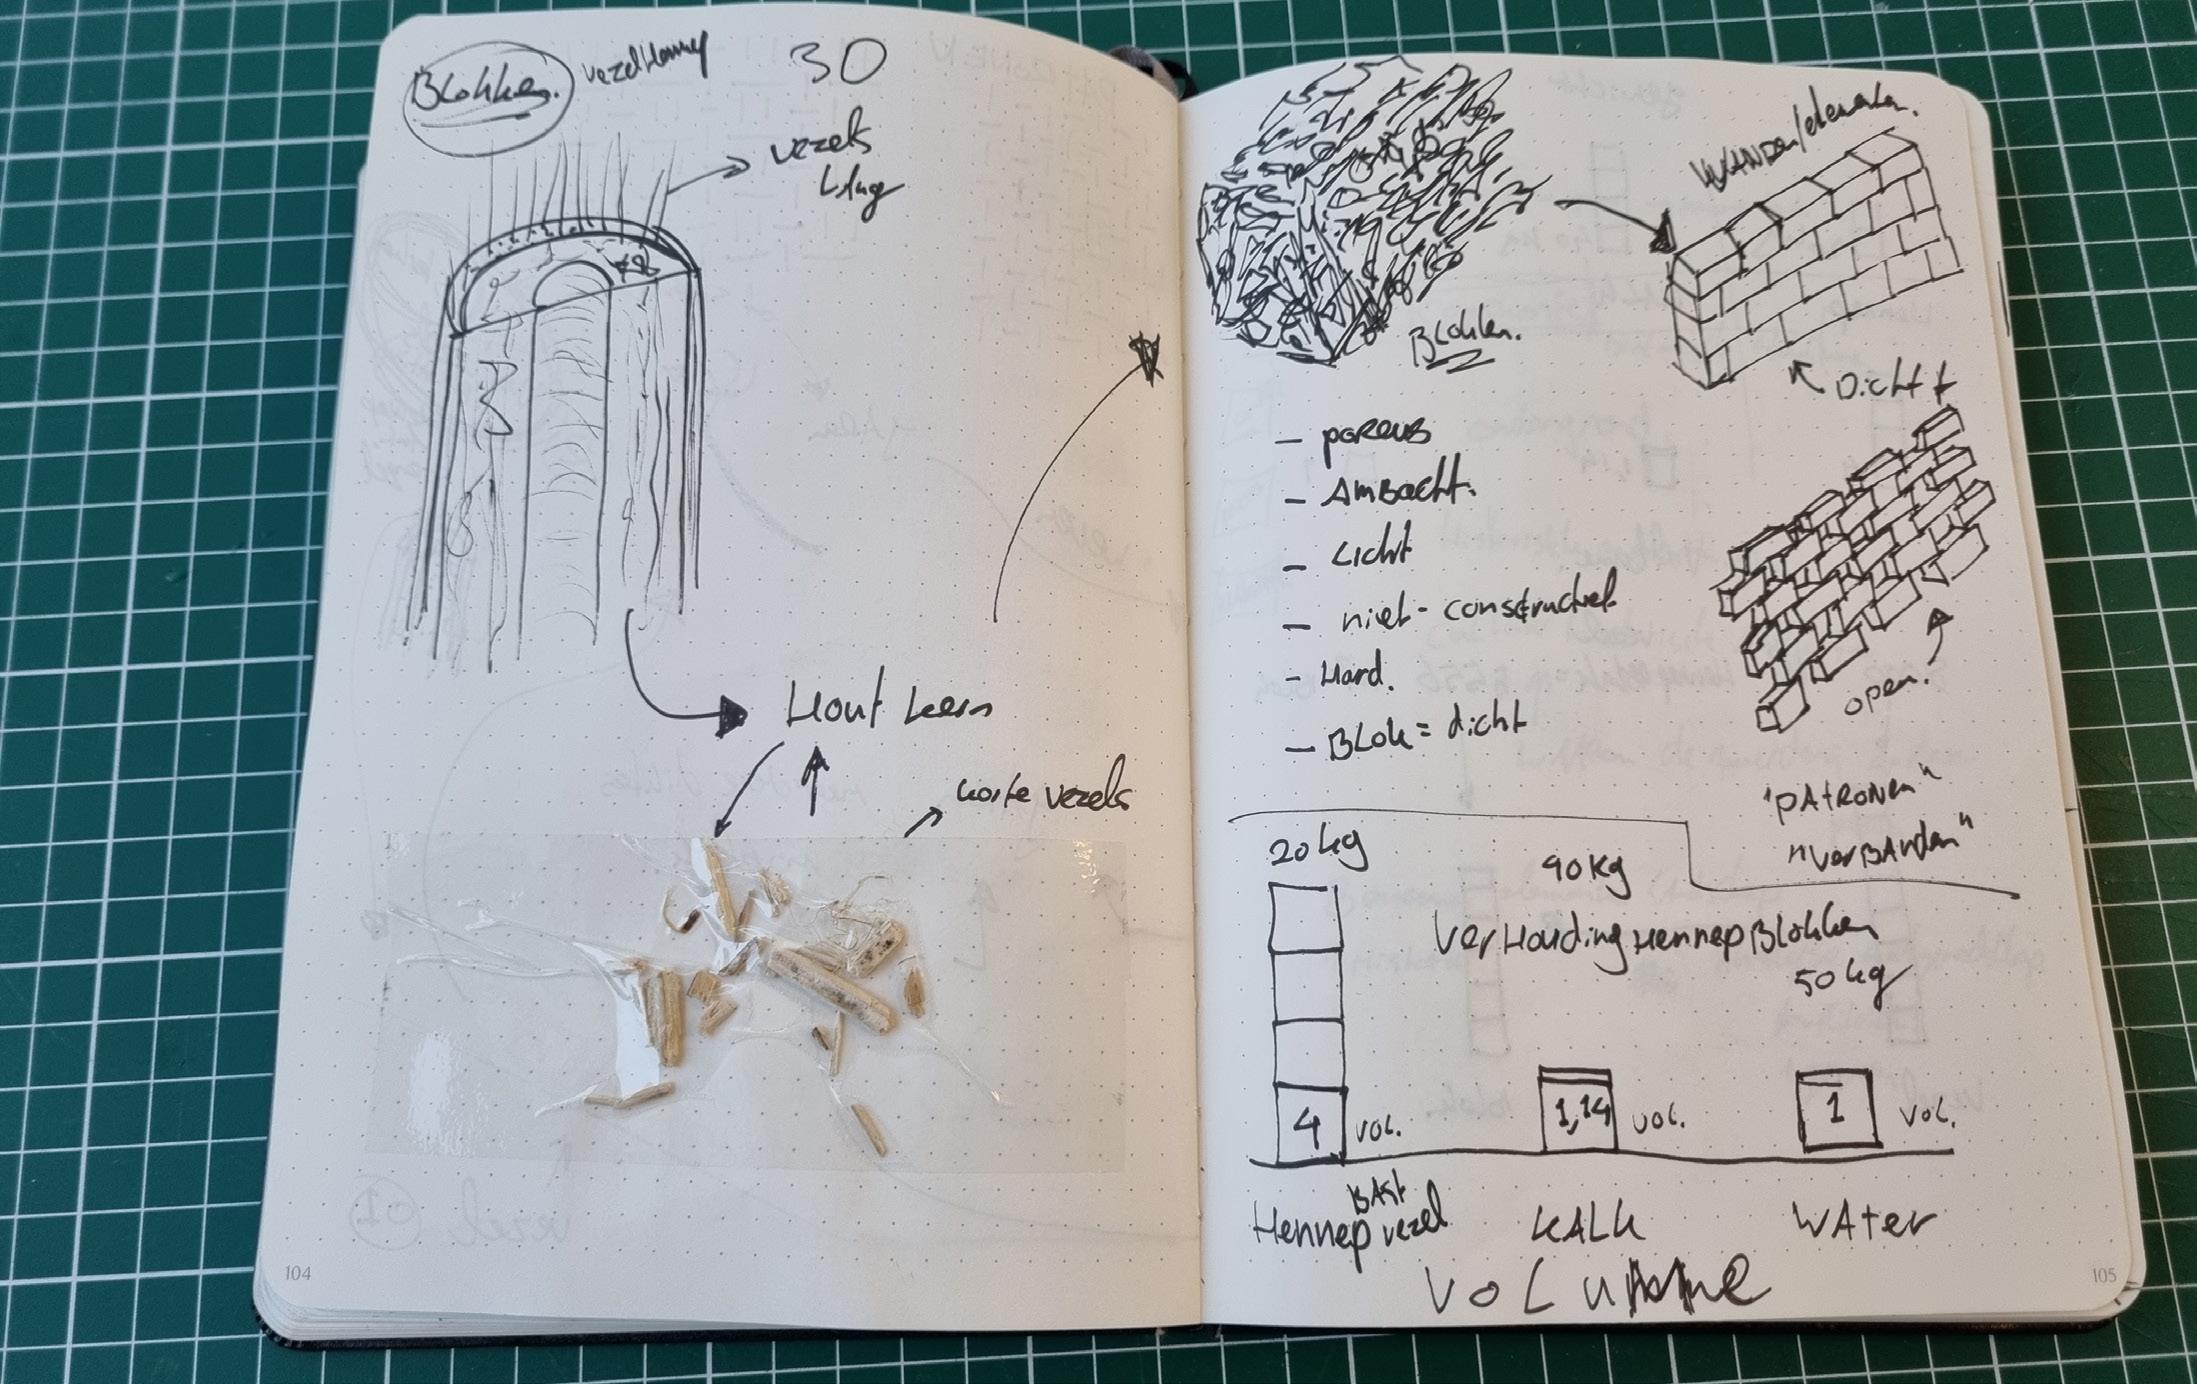 Blokken.
vezelHennep
30
vezels
Lang
Hout kern
korte vezels
104
Blokken.
WANDEN/elementen.
Dicht
- poreus
- Ambacht.
- Licht
- niet-constructief
- Hard.
- Blok = dicht
open.
"PAtRONen"
"verBAnden"
20 kg
90 kg
VerHouding HennepBlokken
50 kg
4 vol.
1,14 vol.
1 vol.
BAst
Hennep vezel
KALK
WAter
VoLume
105